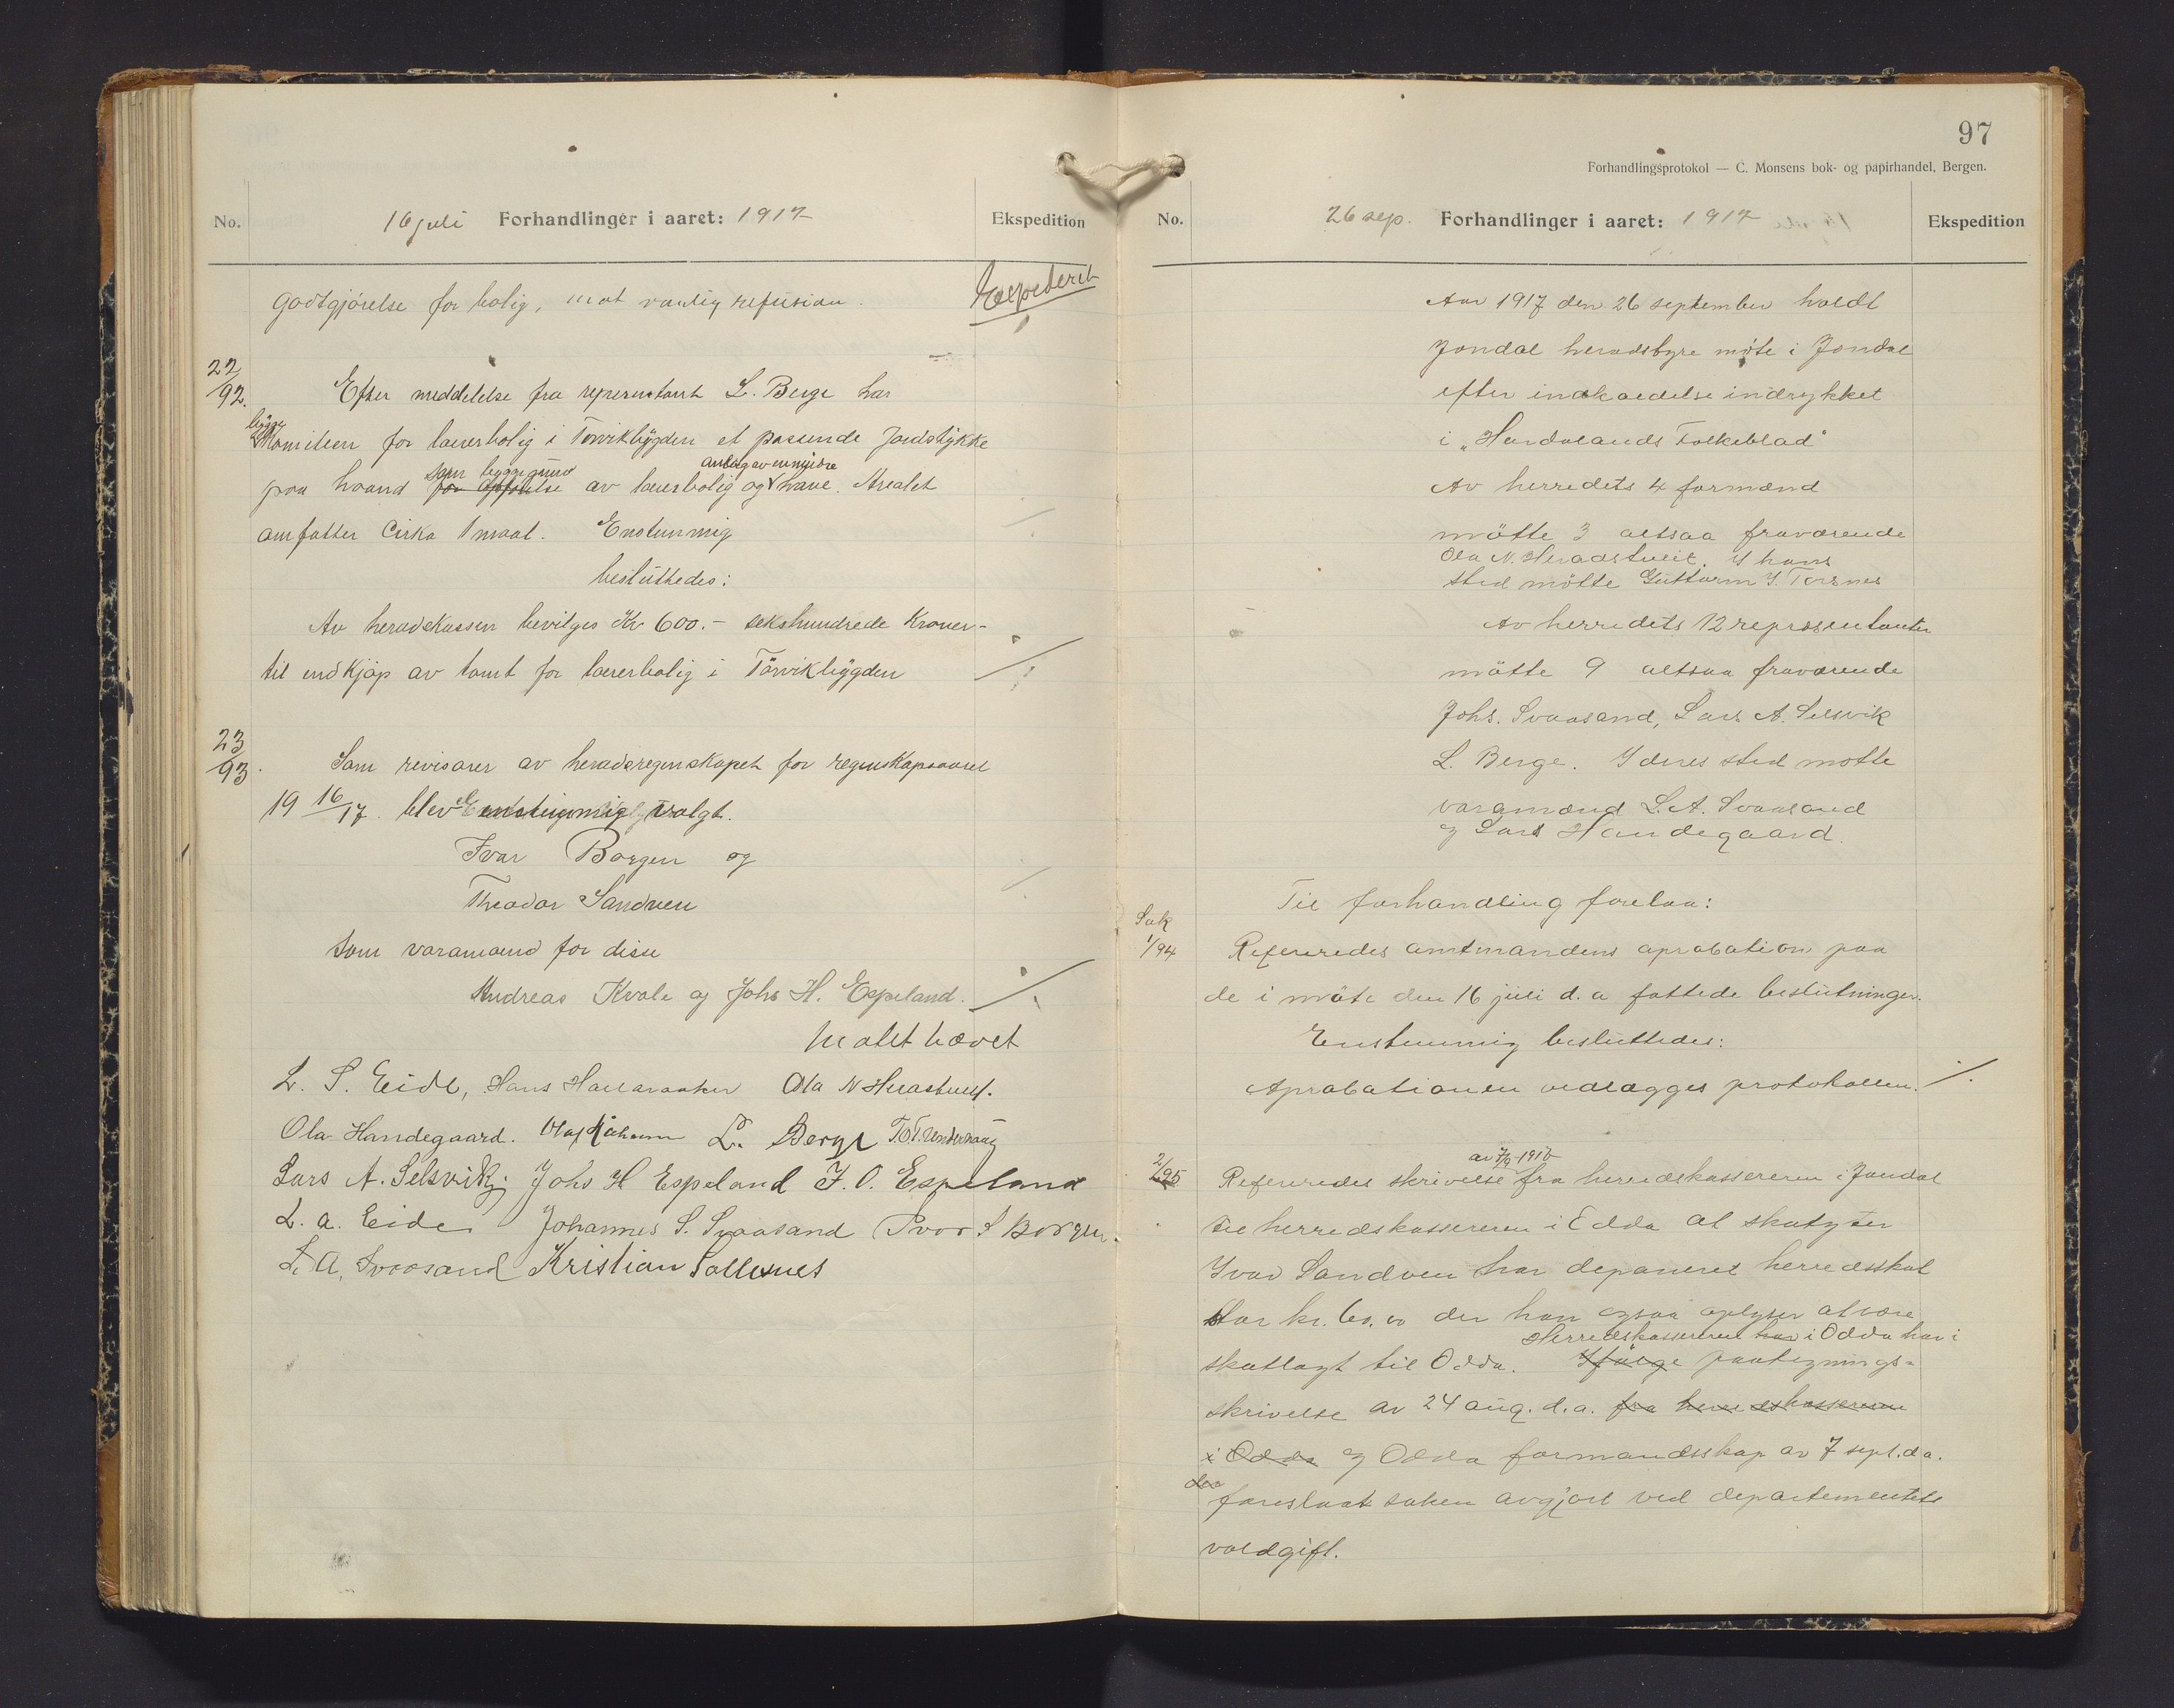 No.
16 juli Forhandlinger i aaret: 1917
Ekspedition
Godtgjörelse for bolig, mot vanlig refusion.
Expederet
22/92.
Efter meddelelse fra represntant L. Berge har
bygge
Komiteen for lærerbolig i Törvikbygden et passende Jordstykke
som byggegrund anlæg av en mindre
paa haand for opförelse av lærerbolig og have. Arealet
omfatter Cirka 1 maal. Enstemmig
besluttedes:
Av heradskassen bevilges Kr 600.- sekshundrede Kroner-
til indkjöp av tomt for lærerbolig i Törvikbygden
23/93.
Som revisorer av heradsregnskapet for regnskapsaaret
19 16/17. blev enstemmig valgt.
Ivar Borgen og
Theodor Sandven
Som varamænd for disse
Andreas Kvale og Johs H. Espeland.
Mötet hævet
L. S. Eide, Hans Hallaraaker Ola N Herastveit.
Ola Handegaard. L. Berge T. O. T. Underhaug
Lars A. Selsvik; Johs H Espeland J. O. Espeland
L. A. Eide Johannes S. Svaasand Ivar S Borgen.
L. A. Svaasand Kristian Sollesnes
97
Forhandlingsprotokol — C. Monsens bok- og papirhandel, Bergen.
No.
26 sep. Forhandlinger i aaret: 1917
Ekspedition
Aar 1917 den 26 september holdt
Jondal heradstyre möte i Jondal
efter indkaldelse indrykket
i „Hardalands Folkeblad"
Av herredets 4 formænd
mötte 3 altsaa fraværende
Ola N. Heradstveit. I hans
sted mötte Guttorm J. Torsnes
Av herredets 12 repræsentanter
mötte 9 altsaa fraværende
Johs. Svaasand, Lars A. Selsvik
L. Berge. I deres sted motte
varamænd L. A. Svaasand
og Lars Handegaard.
Til forhandling forelaa:
Sak
1/94
Refereredes amtmandens aprobation paa
de i möte den 16 juli d. a fattede beslutninger.
Enstemmig besluttedes:
Aprobationen vedlægges protokollen.
av 7/9-1916
2/95
Refereredes skrivelse fra herredskassereren i Jondal
til herredskassereren i Edda at skatyter
Ivar Sandven har deponeret herredsskat
stor kr. 60.00 der han ogsaa oplyser at være
Herredskassereren har i Odda har i
skatlagt til Odda. Ifölge paategnings-
skrivelse av 24 aug. d. a. fra herredskassereren
i Odda og Odda formandsskap av 7 sept. d a.
foreslaat saken avgjort ved departementets
voldgift.